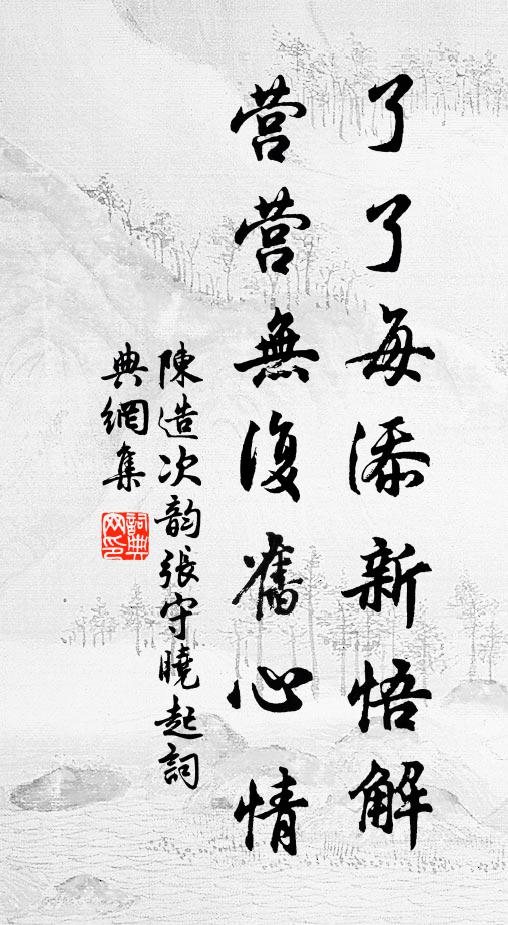 了了每添新悟解
营营無復舊心情
陳造次韵張守曉起詞
典網集
詞典网印